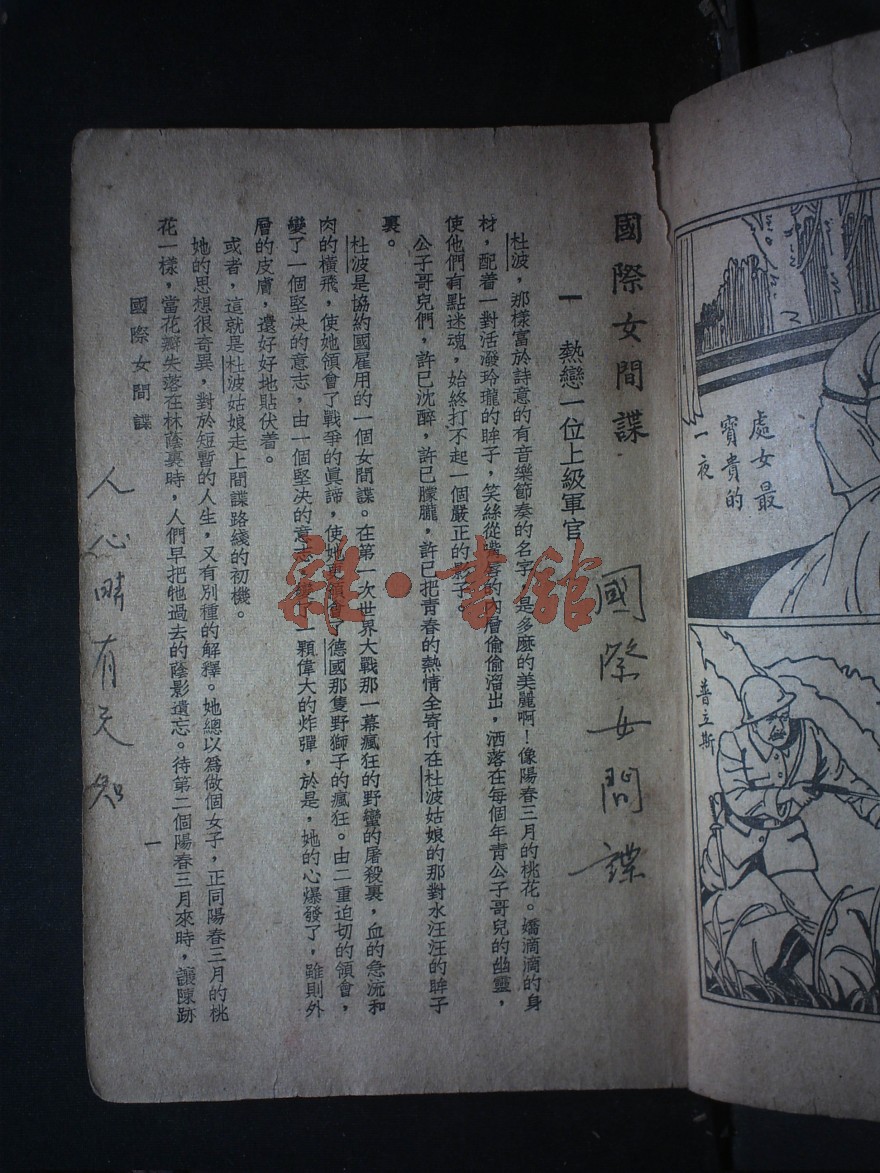 處女最
寶貴的
一夜
普立斯
國際女間諜
國際女間諜
一 熱戀一位上級軍官
杜波，那樣富於詩意的有音樂節奏的名字，是多麼的美麗啊！像陽春三月的桃花。嬌滴滴的身
材，配着一對活潑玲瓏的眸子，笑絲從嘴唇的內層偷偷溜出，洒落在每個年靑公子哥兒的幽靈，
使他們有點迷魂，始終打不起一個嚴正的影子。
公子哥兒們，許已沈醉，許已朦朧，許已把靑春的熱情全寄付在杜波姑娘的那對水汪汪的眸子
裏。
杜波是協約國雇用的一個女間諜。在第一次世界大戰那一幕瘋狂的野蠻的屠殺裏，血的急流和
肉的橫飛，使她領會了戰爭的眞諦，使她更領會了德國那隻野獅子的瘋狂。由二重迫切的領會，
變了一個堅決的意志，由一個堅決的意志，變了一顆偉大的炸彈，於是，她的心爆發了，雖則外
層的皮膚，還好好地貼伏着。
或者，這就是杜波姑娘走上間諜路綫的初機。
她的思想很奇異，對於短暫的人生，又有別種的解釋。她總以爲做個女子，正同陽春三月的桃
花一樣，當花瓣失落在林蔭裏時，人們早把牠過去的蔭影遺忘。待第二個陽春三月來時，讓陳跡
國際女間諜
一
人心 有天知
雜·書館